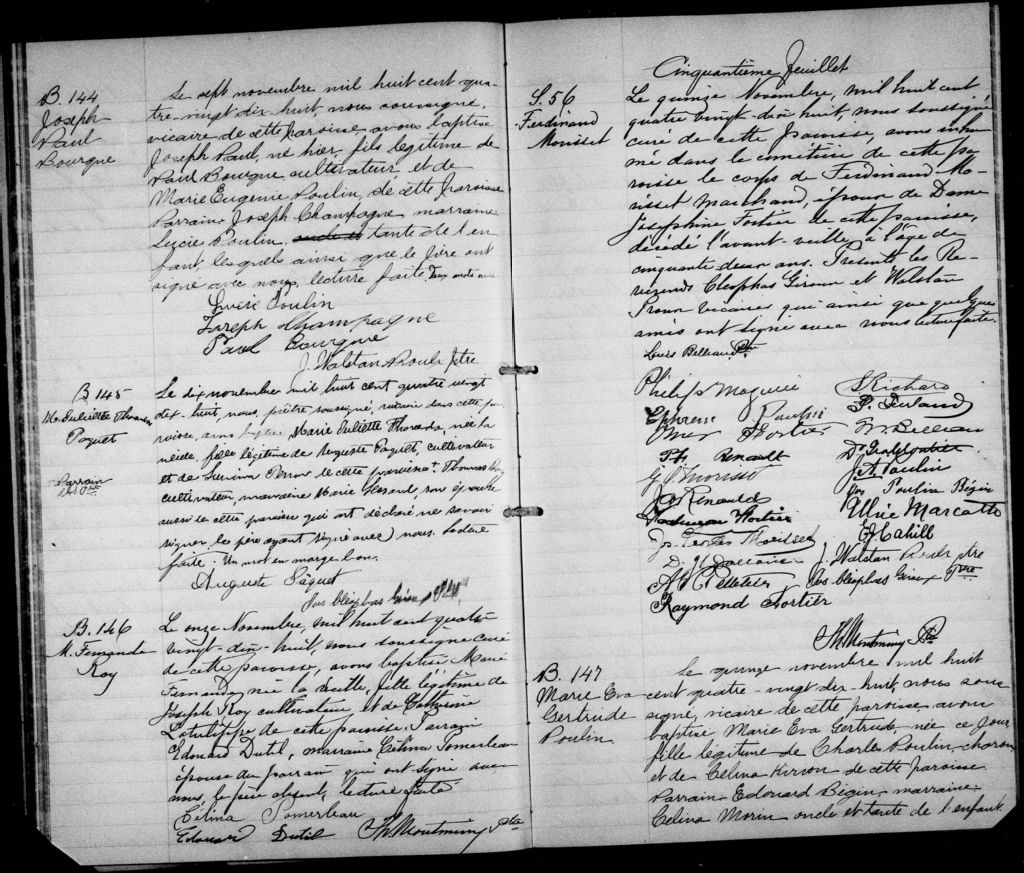 B. 144
Joseph
Paul
Bourque
Le sept novembre mil huit cent qua-
tre-vingt dix-huit, nous soussigné,
vicaire de cette paroisse avons baptisé
Joseph Paul, né hier, fils légitime de
Paul Bourque cultivateur, et de
Marie Eugenie Poulin, de cette paroisse
Parrain Joseph Champagne marraine
Lucie Poulin, tante de l'en
fant, lesquels ainsi que le père ont
signé avec nous, lecture faite
Lucie Poulin
Joseph Champagne
Paul Bourque
J. Walstan Proulx ptre
B 145
Paquet
Parrain
Le dix novembre mil huit cent quatre vingt
dix-huit, nous, prêtre soussigné, vicaire dans cette pa-
roisse, avons baptisé Marie Juliette née la
veille, fille légitime de Auguste Paquet, cultivateur
et de de cette paroisse Thomas
cultivateur, marraine Marie son épouse
aussi de cette paroisse qui ont déclaré ne savoir
signer le père ayant signé avec nous. Lecture
faite. Un mot en marge bon.
Auguste Paquet
Jos Cléophas Giroux Ptre
B. 146
M. Fernande
Roy
Le onze Novembre, mil huit cent quatre
vingt-dix-huit, nous soussigné curé
de cette paroisse, avons baptisé Marie
Fernande, née la veille, fille légitime de
Joseph Roy cultivateur et de Catherine
Latulippe de cette paroisse. Parrain
Edouard Dutil, marraine Célina Pomerleau
épouse du parrain qui ont signé avec
nous, le père absent, lecture faite
Célina Pomerleau
Edouard Dutil Th Montminy Ptre
Cinquantième feuillet
S. 56
Ferdinand
Morisset
Le quinze Novembre, mil huit cent
quatre vingt-dix huit, nous soussigné
curé de cette paroisse, avons inhu
mé dans le cimetière de cette pa
roisse le corps de Ferdinand Mo-
risset marchand, époux de Dame
Josephine Fortier de cette paroisse,
décédé l'avant-veille à l'âge de
cinquante deux ans. Présents les Ré-
vérends Cléophas Giroux et Walstan
Proux vicaires qui ainsi que quelques
amis ont signé avec nous lecture faite.
Philip Maguire
J Richard
Ephrem Poulin
P. Ferland
Fortier
Renault
J. A. Poulin
Renauld
Jos Poulin Bégin
Ulric Marcotte
E J Cahill
J. Walstan Proulx ptre
Pelletier
Jos Cléophas Giroux Ptre
Raymond Fortier
Th Montminy Ptre
B. 147
Marie Eva
Gertrude
Poulin
Le quinze novembre mil huit
cent quatre-vingt dix-huit, nous sous
signé, vicaire de cette paroisse, avons
baptisé Marie Eva Gertrude, née ce jour
fille légitime de Charles Poulin, charron
et de Celina de cette paroisse
Parrain Edouard Bégin, marraine
Celina Morin oncle et tante de l'enfant